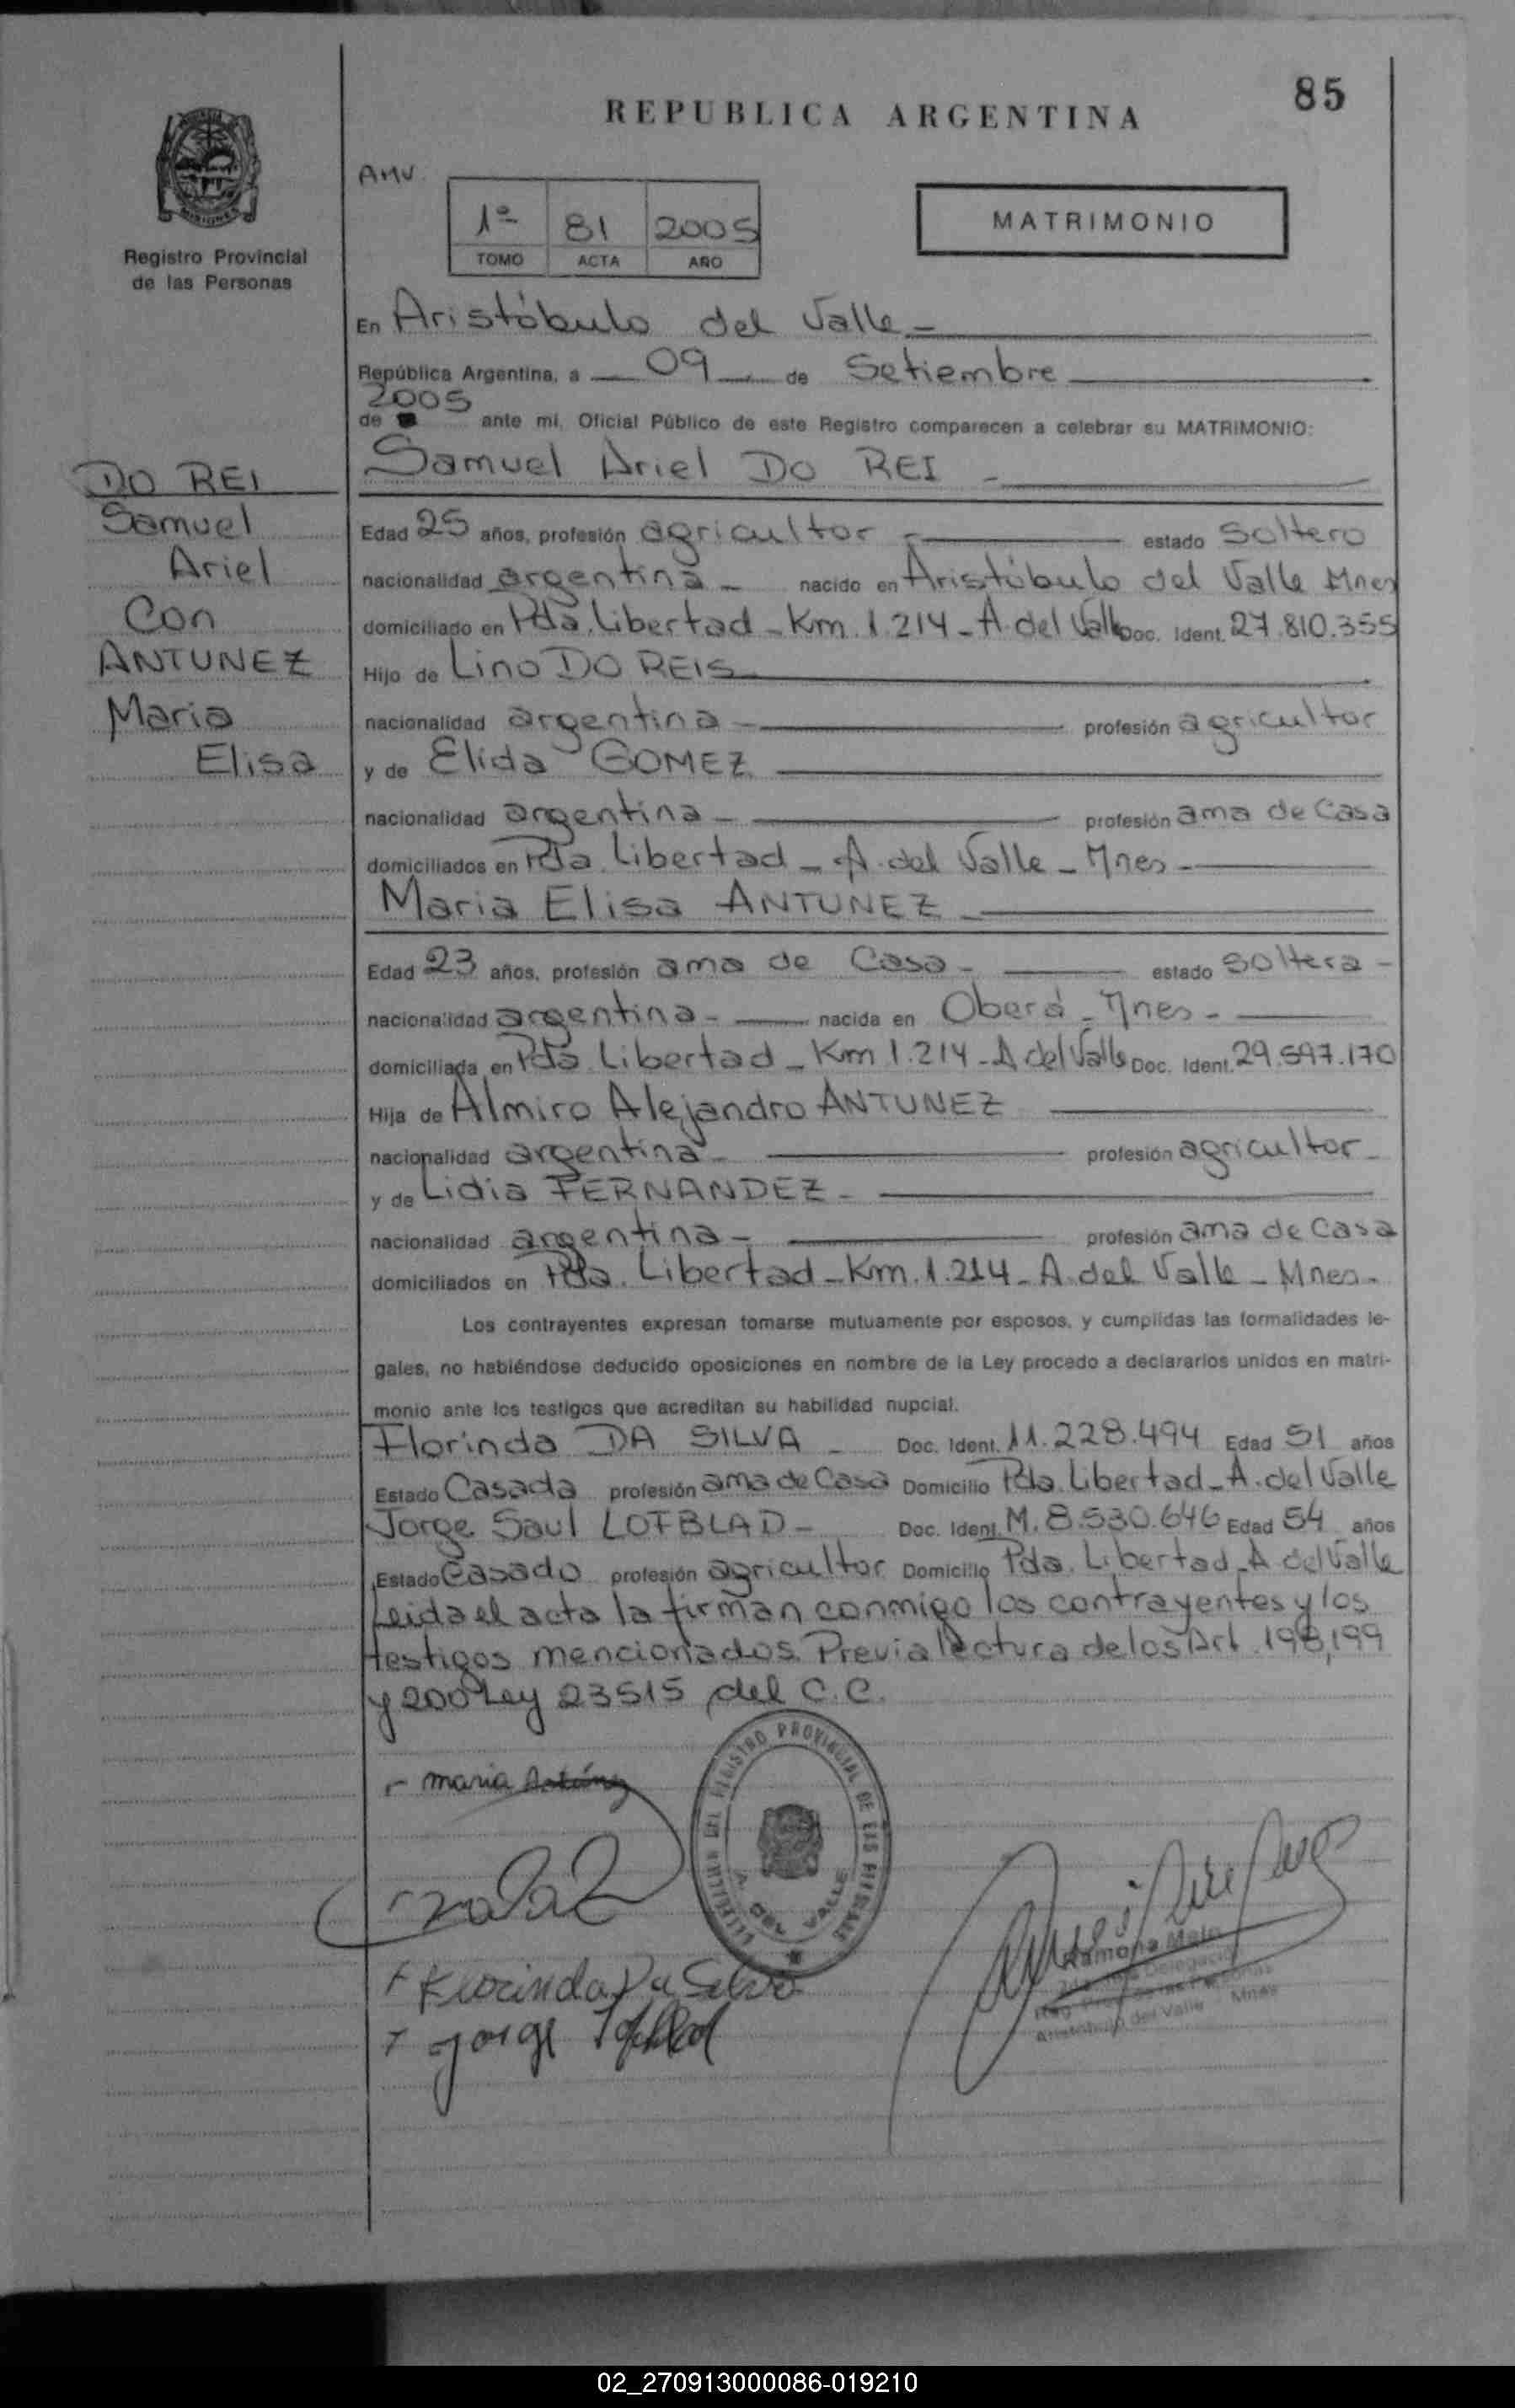 85
REPUBLICA ARGENTINA
MISIONES
Registro Provincial
de las Personas
AMV.
1º 81 2005
TOMO ACTA AÑO
MATRIMONIO
En Aristóbulo del Valle -
República Argentina, a 09 de Setiembre
2005
de ante mi, Oficial Público de este Registro comparecen a celebrar su MATRIMONIO:
Samuel Ariel DO REI -
DO REI
Samuel
Ariel
Con
ANTUNEZ
Maria
Elisa
Edad 25 años, profesión agricultor - estado Soltero
nacionalidad argentina - nacido en Aristóbulo del Valle Mnes
domiciliado en Pda. Libertad - Km. 1.214 - A del Valle Doc. Ident. 27.810.355
Hijo de Lino DO REIS
nacionalidad argentina - profesión agricultor
y de Elida GOMEZ
nacionalidad argentina - profesión ama de Casa
domiciliados en Pda. Libertad - A. del Valle - Mnes -
Maria Elisa ANTUNEZ -
Edad 23 años, profesión ama de Casa - estado Soltera -
nacionalidad argentina - nacida en Oberá - Mnes -
domiciliada en Pda Libertad - Km 1.214 - A del Valle Doc. Ident. 29.597.170
Hija de Almiro Alejandro ANTUNEZ
nacionalidad argentina - profesión agricultor -
y de Lidia FERNANDEZ -
nacionalidad argentina - profesión ama de Casa
domiciliados en Pda. Libertad - Km. 1.214 - A. del Valle - Mnes -
Los contrayentes expresan tomarse mutuamente por esposos, y cumplidas las formalidades le-
gales, no habiéndose deducido oposiciones en nombre de la Ley procedo a declararlos unidos en matri-
monio ante los testigos que acreditan su habilidad nupcial.
Florinda DA SILVA - Doc. Ident. 11.228.494 Edad 51 años
Estado Casada profesión ama de Casa Domicilio Pda. Libertad - A. del Valle
Jorge Saul LOFBLAD - Doc. Ident. M. 8.530.646 Edad 54 años
Estado Casado profesión agricultor Domicilio Pda. Libertad - A del Valle
Leida el acta la firman conmigo los contrayentes y los
testigos mencionados. Previa lectura de los Art. 198,199
y 200 Ley 23515 del C.C.
maria Antúnez
REGISTRO PROVINCIAL DE LAS PERSONAS
A. DEL VALLE
Florinda Da Silva
Jorge Lofblad
Ramona Melo
Delegación
Reg. Prov. de las Personas
Aristóbulo del Valle - Mnes
02_270913000086-019210